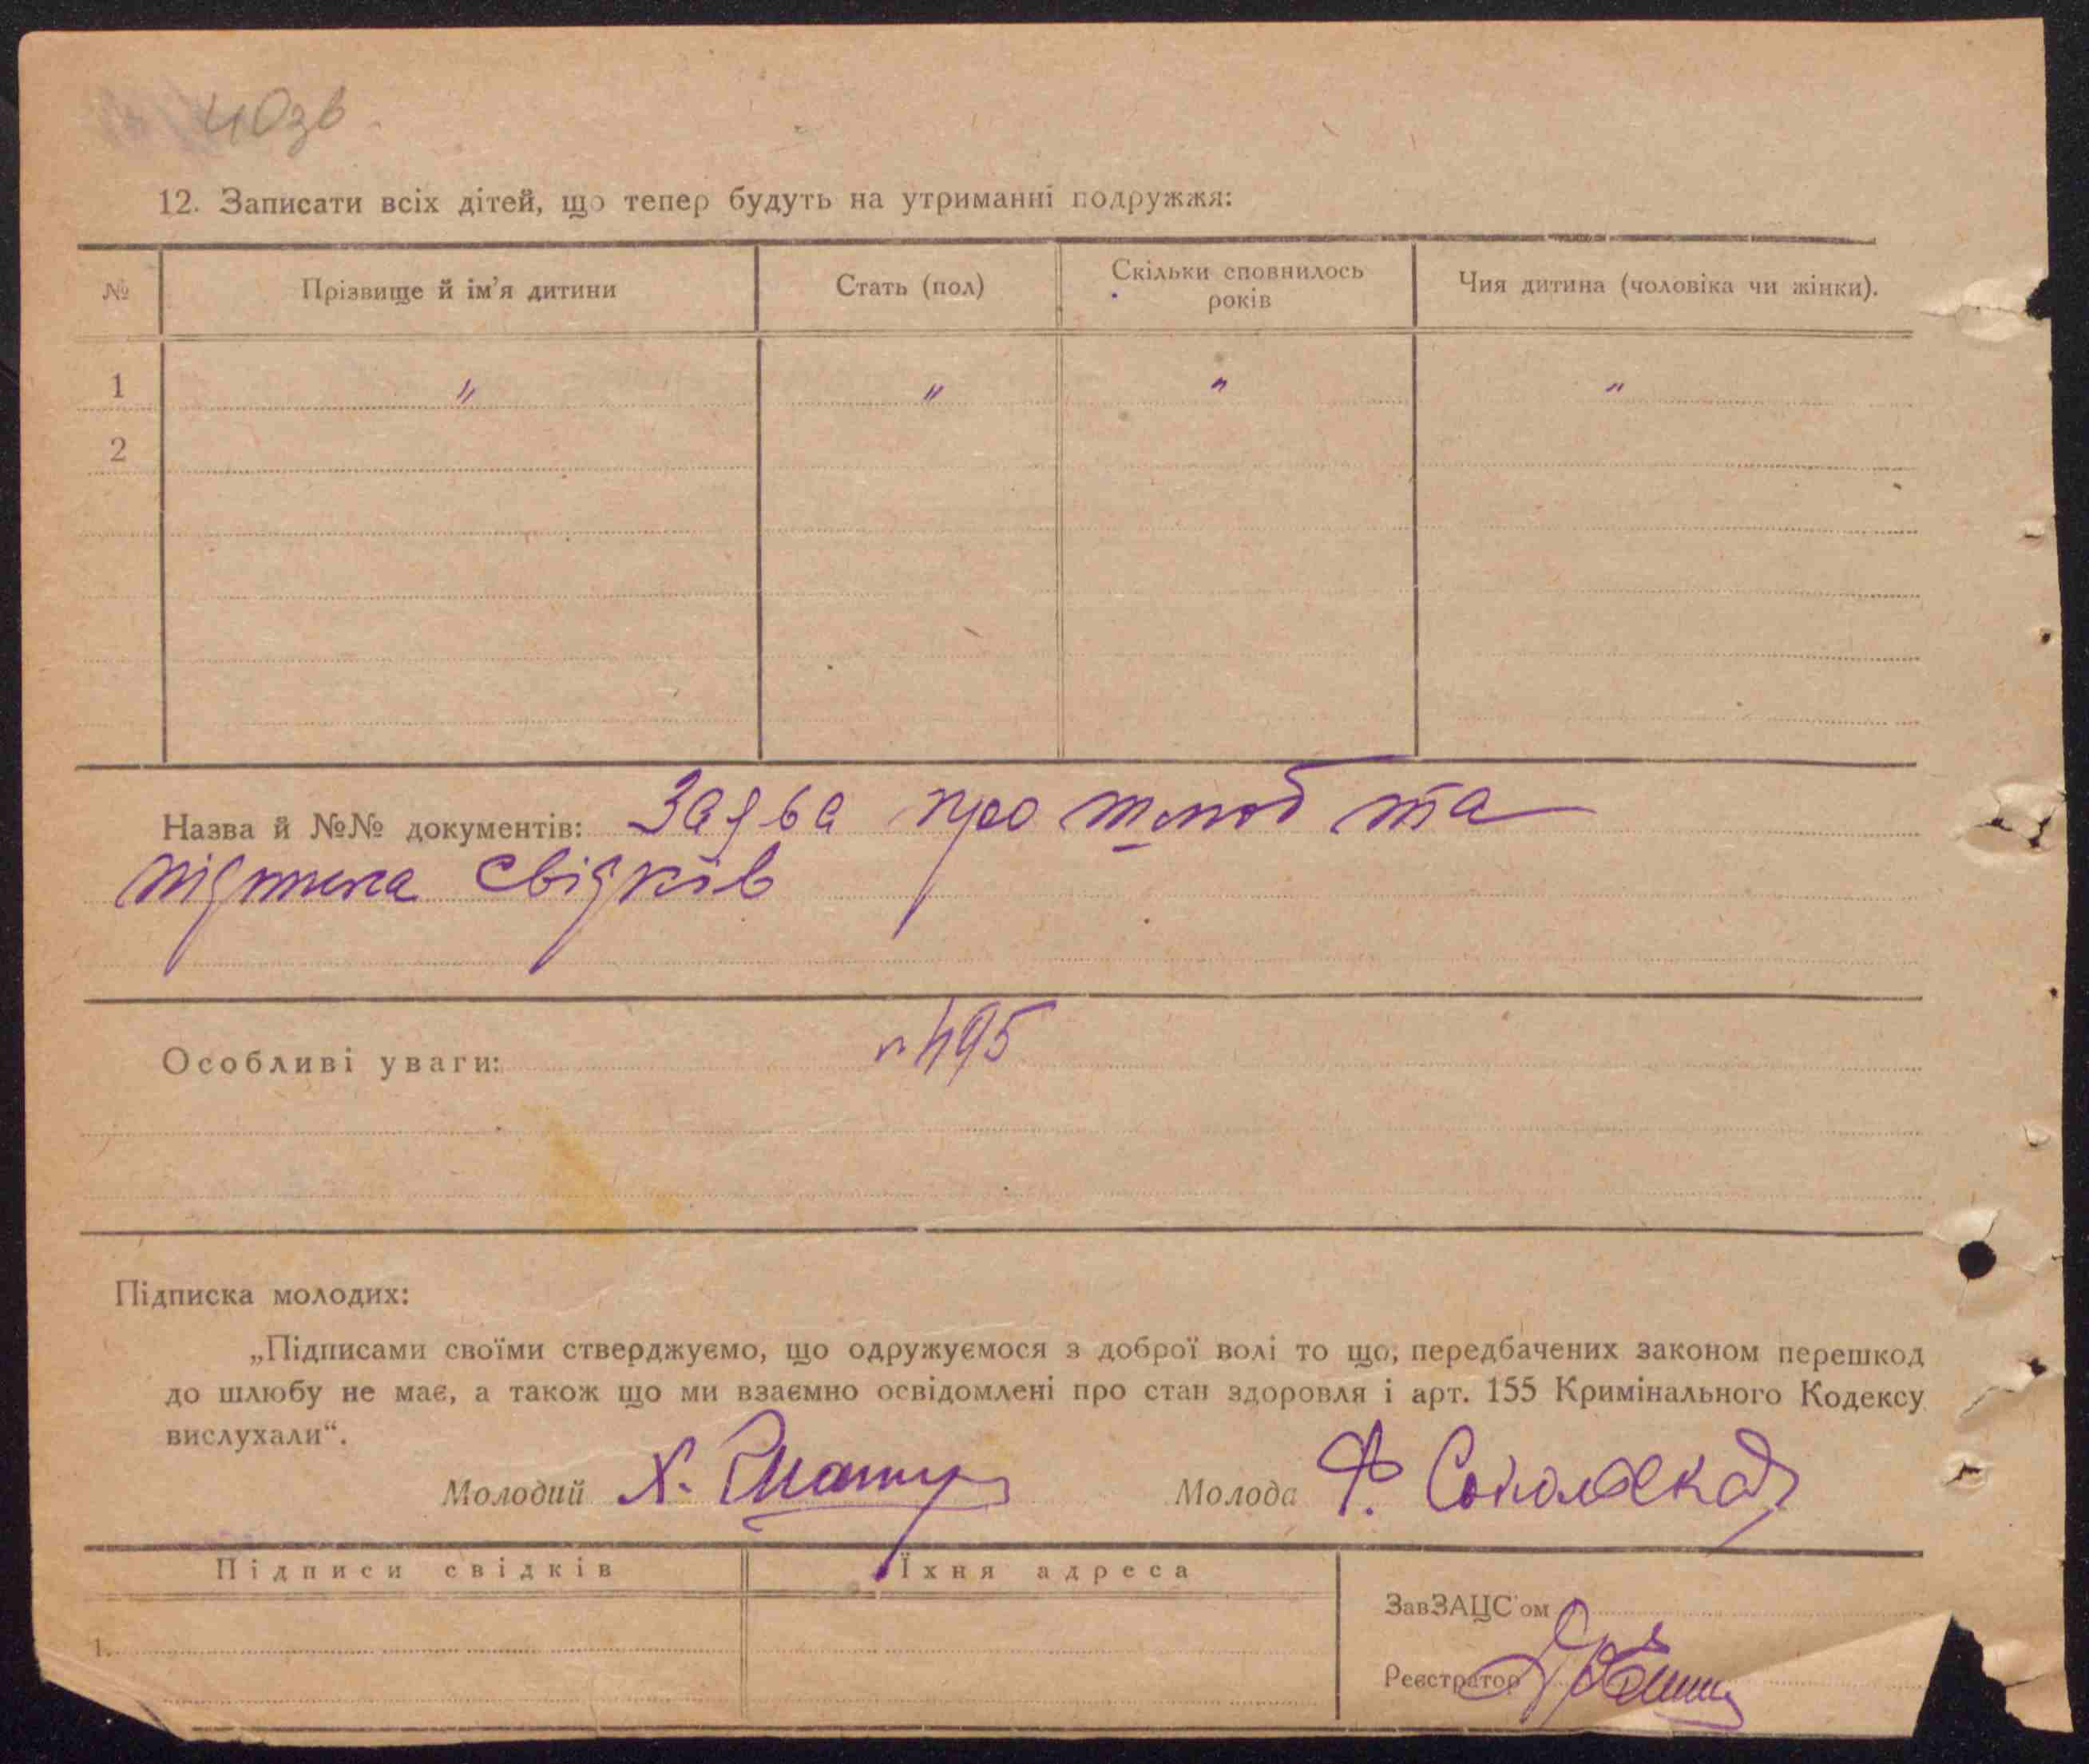 40зв
12. Записати всіх дітей, що тепер будуть на утриманні подружжя:
№ Прізвище й ім'я дитини Стать (пол) Скільки сповнилось років Чия дитина (чоловіка чи жінки).
1 " " " "
2
Назва й №№ документів: Заява про шлюб та
підписка свідків
Особливі уваги: n 495
Підписка молодих:
„Підписами своїми стверджуємо, що одружуємося з доброї волі то що, передбачених законом перешкод
до шлюбу не має, а також що ми взаємно освідомлені про стан здоровля і арт. 155 Кримінального Кодексу
вислухали“.
Молодий Х. Молода Ф. Соколовская
Підписи свідків Їхня адреса
ЗавЗАЦС'ом
1.
Реєстратор